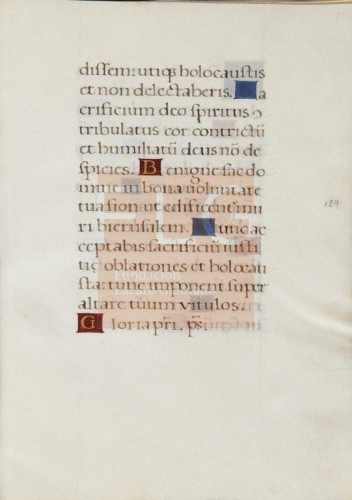 dissem: utiqꝫ holocaustis
et non delectaberis. Sa
crificium deo spiritus
tribulatus cor contrictū
et humiliatū deus nō de
spicies. Benigne fac do
mine in bona voluntate
tua sion ut edificent mu
ri hierusalem. Tunc ac
ceptabis sacrificium iusti
tię oblationes et holocau
sta: tunc imponent super
altare tuum vitulos.
Gloria pr̄i. ps̄.
129
Fundación